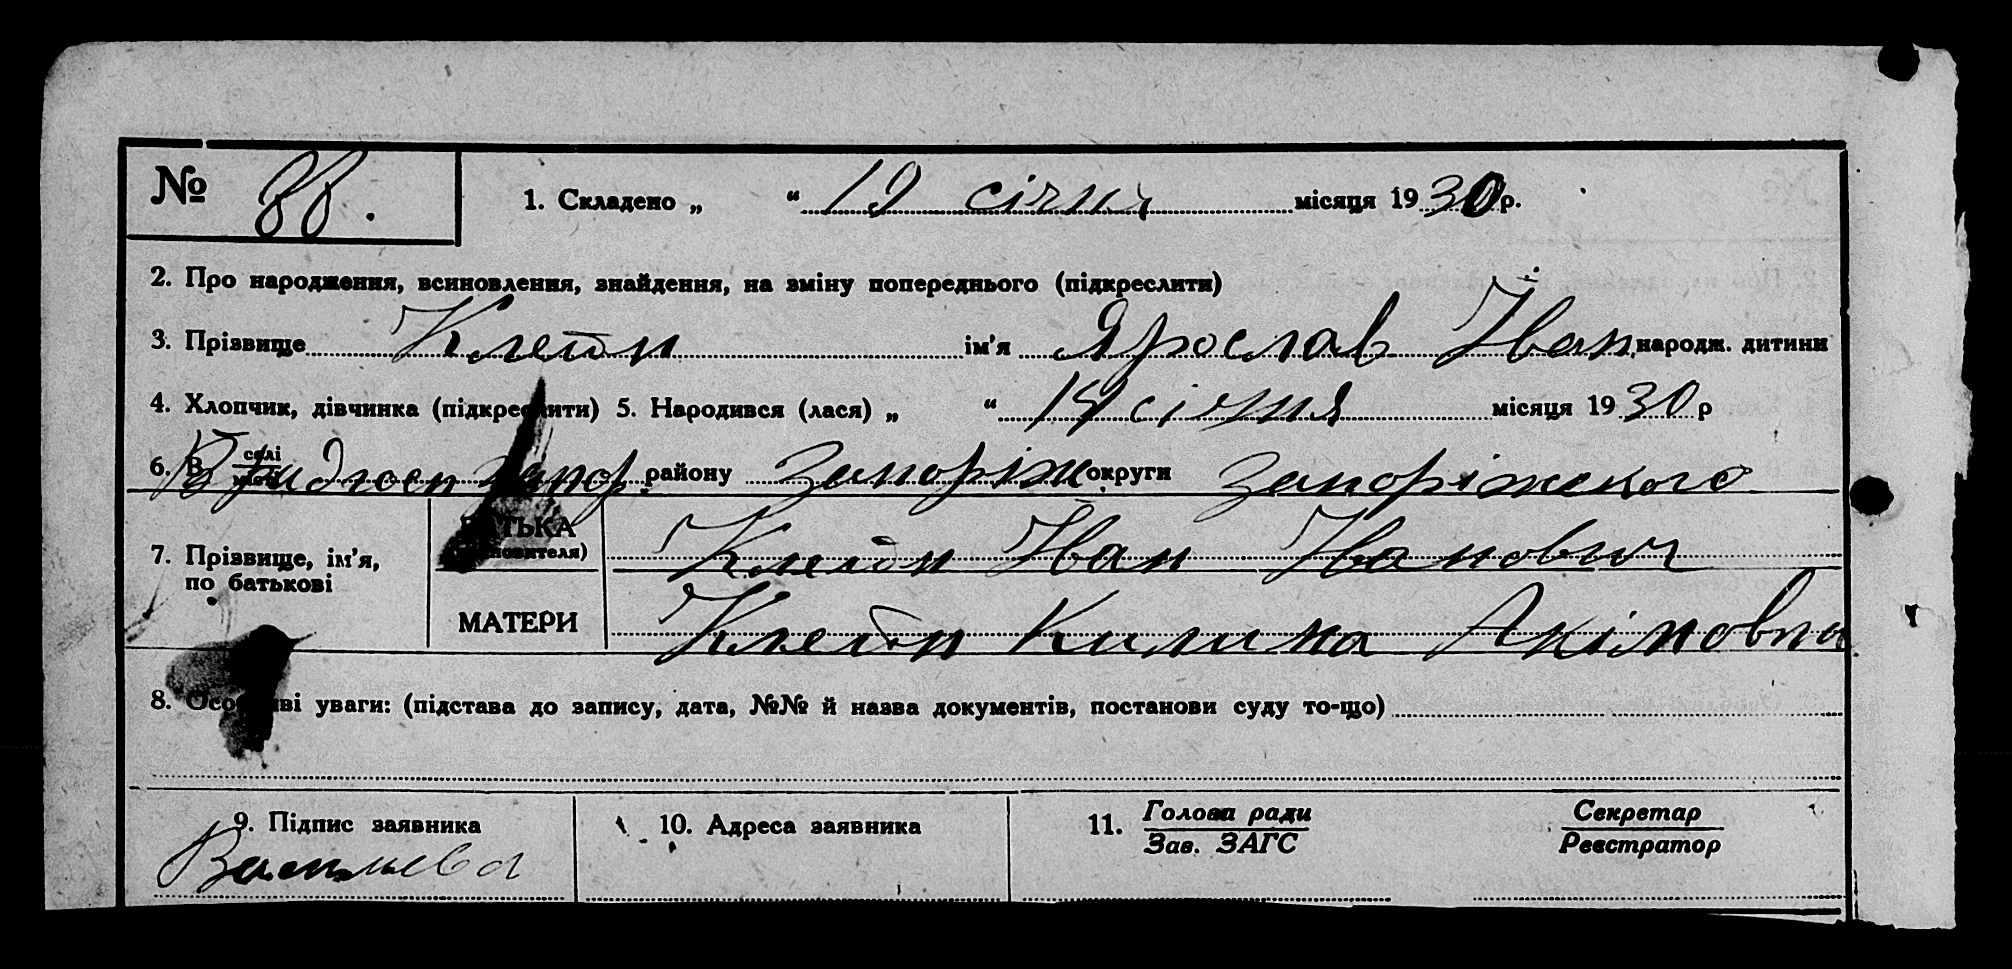 № 88.
1. Складено „ “ 19 січня місяця 1930 р.
2. Про народження, всиновлення, знайдення, на зміну попереднього (підкреслити)
3. Прізвище Клейн ім'я Ярослав Іван. народж. дитини
4. Хлопчик, дівчинка (підкреслити) 5. Народився (лася) „ “ 14 січня місяця 1930 р
6. В селі запор. району Запоріж округи Запоріжского
7. Прізвище, ім'я, по батькові
БАТЬКА Клейн Іван Іванович
МАТЕРИ Клейн Килина Акімовна
8. Особливі уваги: (підстава до запису, дата, №№ й назва документів, постанови суду то-що)
9. Підпис заявника 10. Адреса заявника 11. Голова ради Секретар
Зав. ЗАГС Реєстратор
Васильева